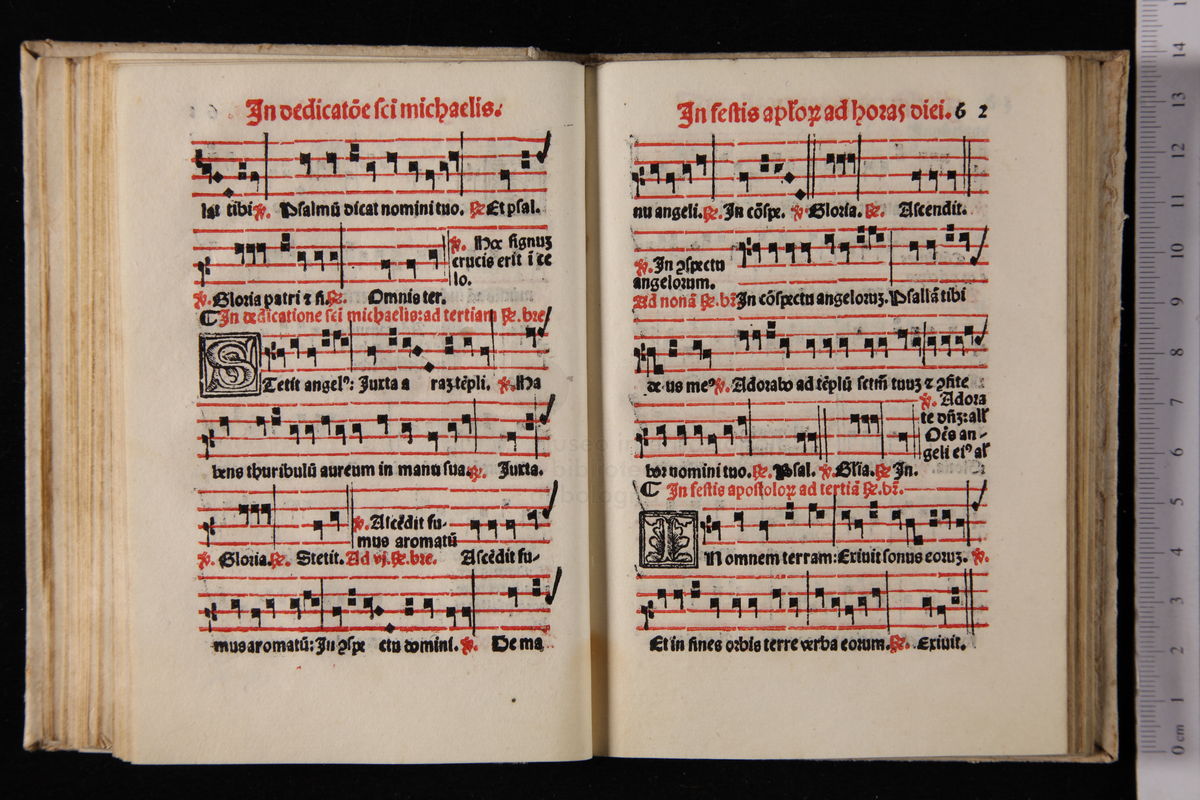 In dedicatōe sci michaelis.
lat tibi ℣. Psalmū dicat nomini tuo. ℟ Et psal.
℣. Hoc signuꝫ
crucis erit i ce
lo.
℣. Gloria patri ⁊ fi. ℟. Omnis ter.
In dedicatione sci michaelis: ad tertiam ℟. bre
STetit angelꝰ: Juxta a raꝫ tēpli. ℣. Ha
bens thuribulū aureum in manu sua. ℟. Juxta.
℣. Ascēdit fu-
mus aromatū
℣. Gloria. ℟. Stetit. Ad vj. ℟. bre. Ascēdit fu-
mus aromatū: In ꝯspe ctu domini. ℣. De ma
In festis aplōꝝ ad horas diei. 62
nu angeli. ℟. In cōspe. ℣ Gloria. ℟. Ascendit.
℣. In ꝯspectu
angelorum.
Ad nonā ℟. br̄ In cōspectu angeloruꝫ. Psallā tibi
de us meꝰ ℣. Adorabo ad tēplū sctm̄ tuuꝫ ⁊ ꝯfite
℣. Adora
te dn̄ꝫ: al
Oēs an-
geli eiꝰ al
bor nomini tuo. ℟. Psal. ℣. Glīa. ℟ In.
In festis apostoloꝝ ad tertiā ℟. br̄.
IN omnem terram: Exiuit sonus eoruꝫ. ℣.
Et in fines orbis terre verba eorum. ℟. Exiuit.
0 cm 1 2 3 4 5 6 7 8 9 10 11 12 13 14